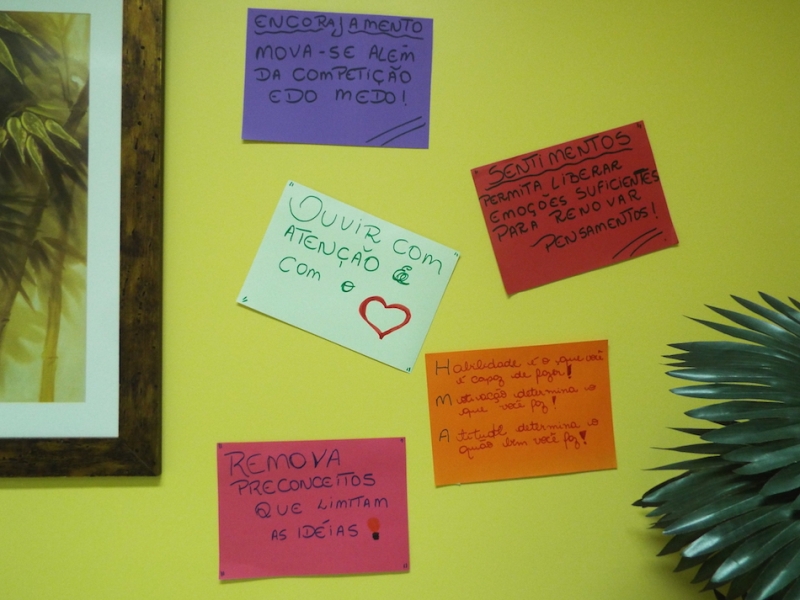 ENCORAJAMENTO
MOVA-SE ALÉM
DA COMPETIÇÃO
E DO MEDO!
SENTIMENTOS
PERMITA LIBERAR
EMOÇÕES SUFICIENTES
PARA RENOVAR
PENSAMENTOS!
OUVIR COM
ATENÇÃO E
COM O
Habilidade é o que você
é capaz de fazer!
Motivação determina o
que você faz!
Atitude determina o
quão bem você faz!
REMOVA
PRECONCEITOS
QUE LIMITAM
AS IDÉIAS!